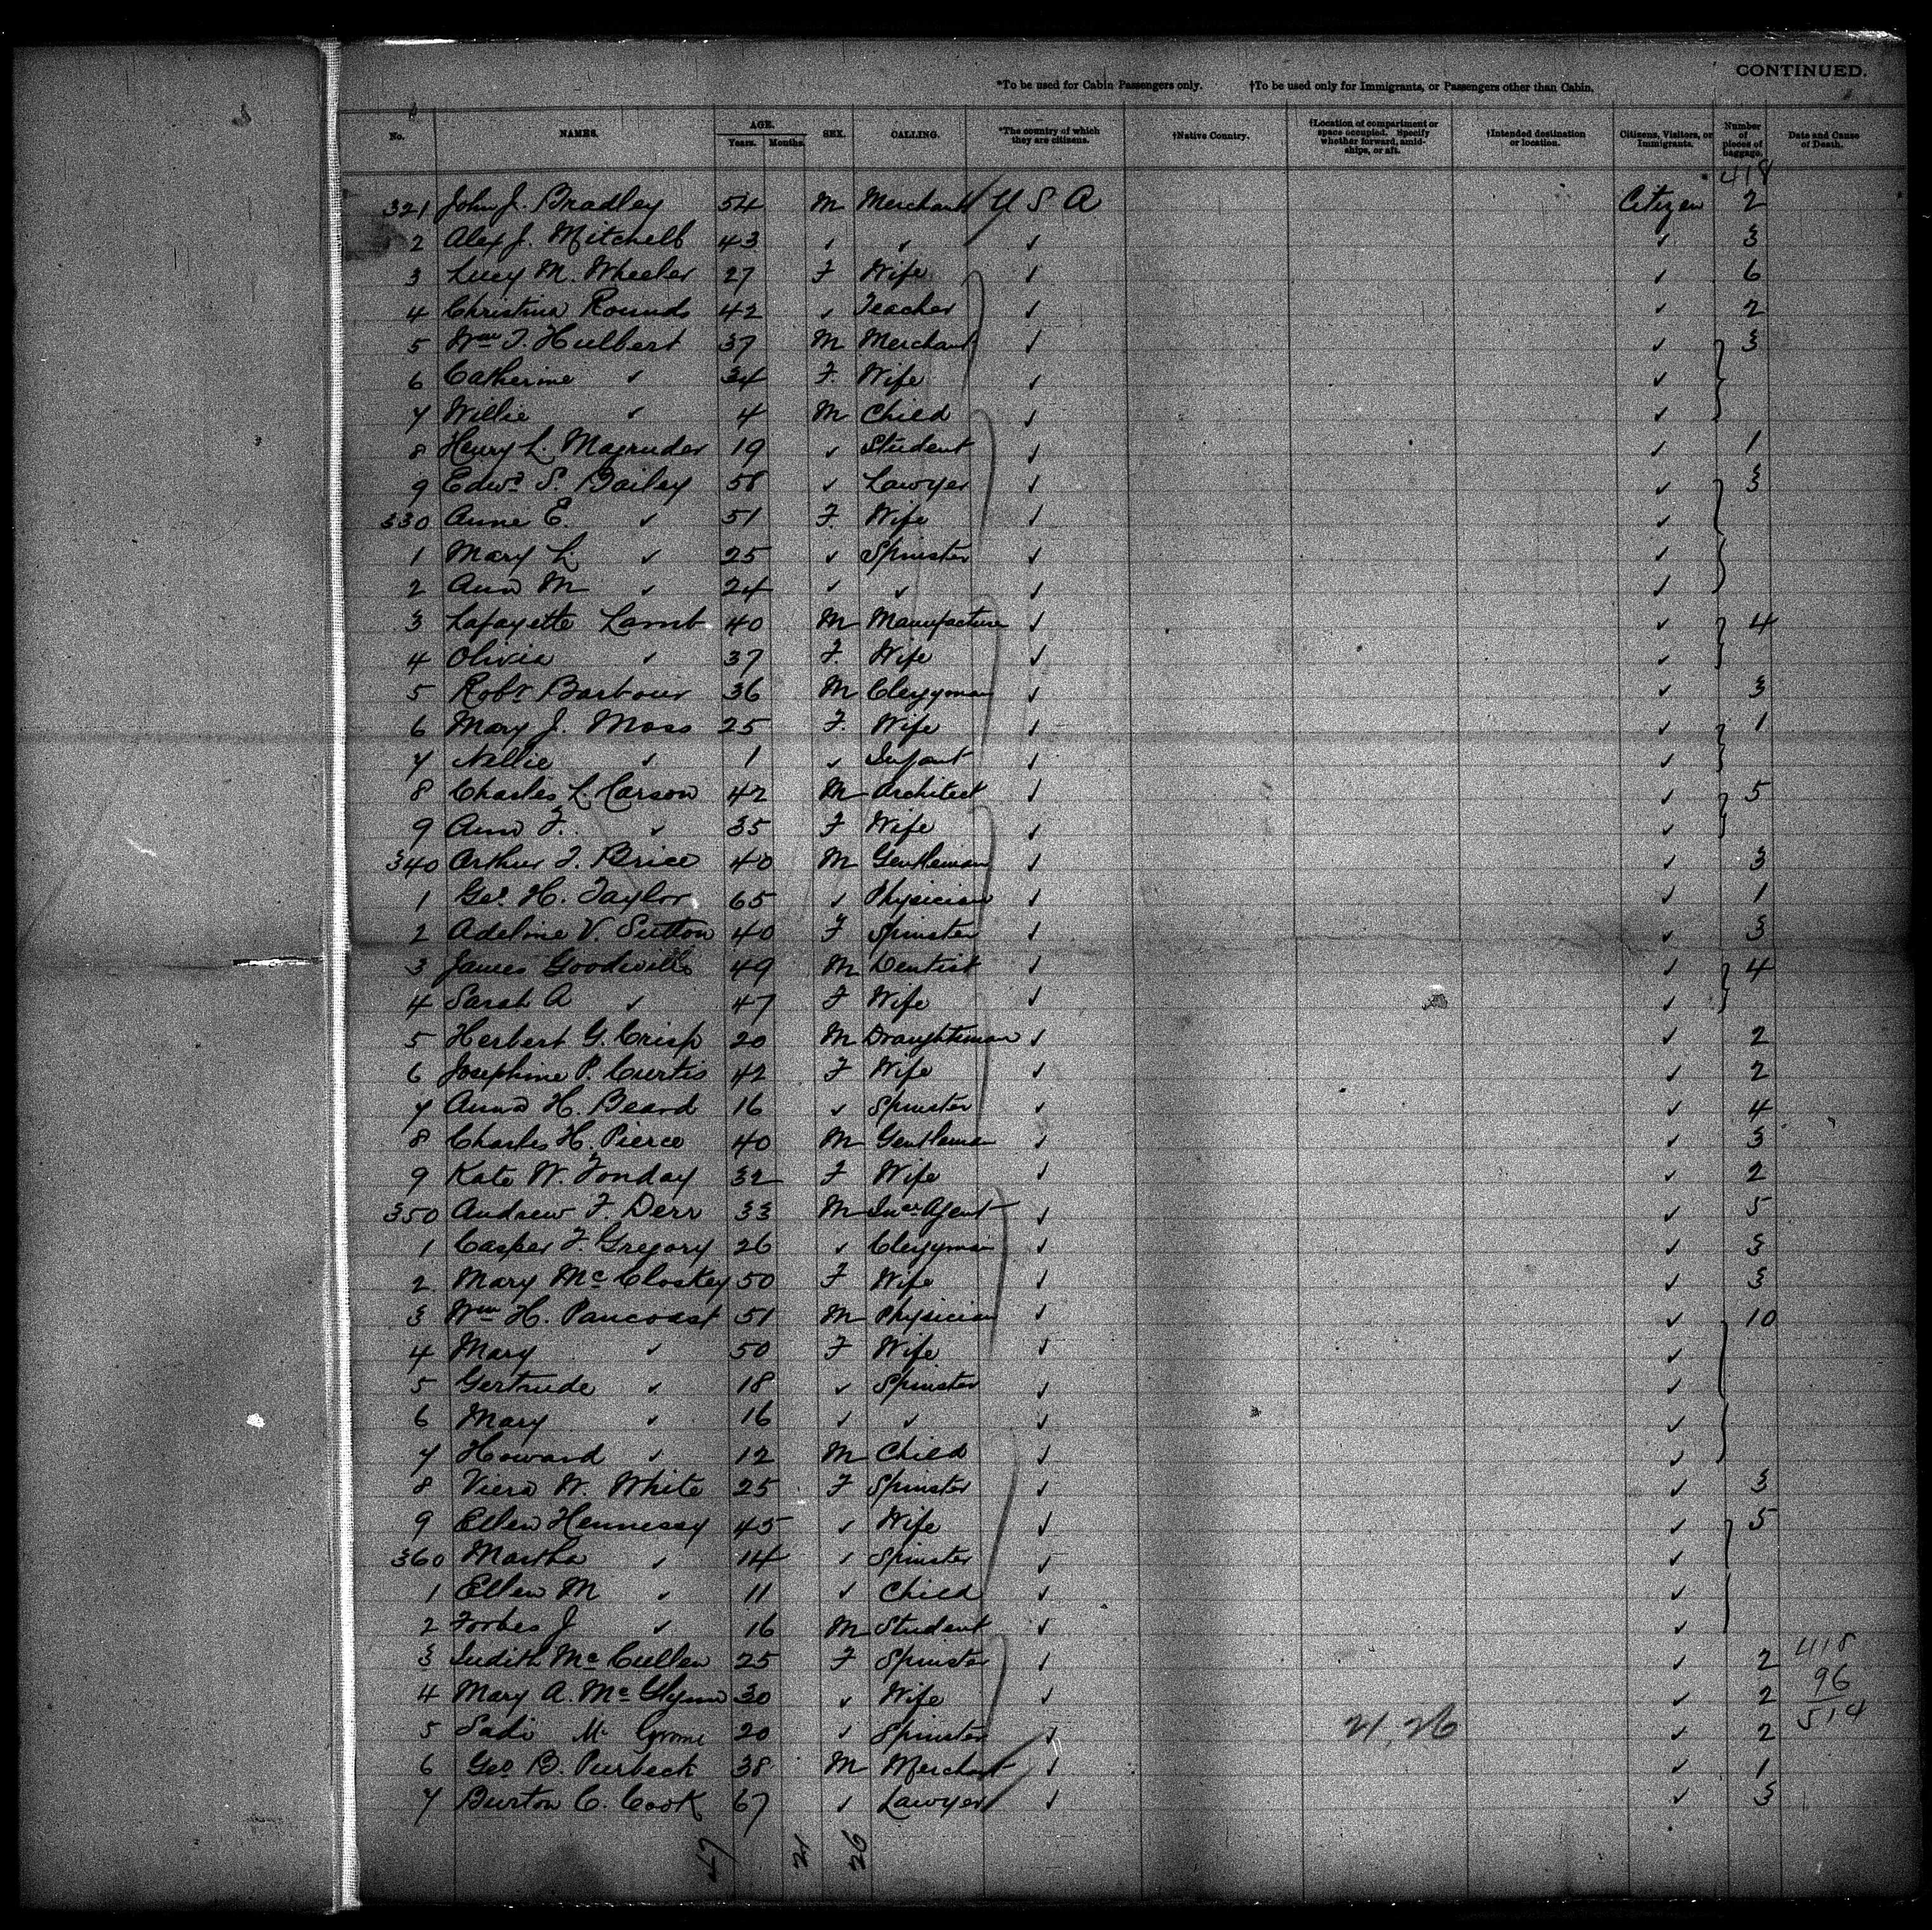 CONTINUED.
*To be used for Cabin Passengers only. †To be used only for Immigrants, or Passengers other than Cabin.
No. NAMES. AGE. Years. Months. SEX. CALLING. *The country of which they are citizens. †Native Country. †Location of compartment or space occupied. Specify whether forward, amidships, or aft. †Intended destination or location. Citizens, Visitors, or Immigrants. Number of pieces of baggage. Date and Cause of Death.
418
321 John J. Bradley 54 M Merchant U S A Citizen 2
2 Alex J. Mitchell 43 ✓ ✓ ✓ ✓ 3
3 Lucy M. Wheeler 27 F Wife ✓ ✓ 6
4 Christina Rounds 42 ✓ Teacher ✓ ✓ 2
5 Wm T. Hulbert 37 M Merchant ✓ ✓ 3
6 Catherine ✓ 34 F. Wife ✓ ✓
7 Willie ✓ 4 M Child ✓ ✓
8 Henry L. Magruder 19 ✓ Student ✓ ✓ 1
9 Edwd S. Bailey 58 ✓ Lawyer ✓ ✓ 3
330 Anne E. ✓ 51 F. Wife ✓ ✓
1 Mary L ✓ 25 ✓ Spinster ✓ ✓
2 Ann M ✓ 24 ✓ ✓ ✓ ✓
3 Lafayette Lamb 40 M Manufacture ✓ ✓ 4
4 Olivia ✓ 37 F. Wife ✓ ✓
5 Robt Barbour 36 M Clergyman ✓ ✓ 3
6 Mary J. Moss 25 F. Wife ✓ ✓ 1
7 Nellie ✓ 1 ✓ Infant ✓ ✓
8 Charles L. Carson 42 M Architect ✓ ✓ 5
9 Ann F. ✓ 35 F Wife ✓ ✓
340 Arthur T. Brice 40 M Gentleman ✓ ✓ 3
1 Geo. H. Taylor 65 ✓ Physician ✓ ✓ 1
2 Adeline V. Sutton 40 F Spinster ✓ ✓ 3
3 James Goodwillo 49 M Dentist ✓ ✓ 4
4 Sarah A ✓ 47 F Wife ✓ ✓
5 Herbert G. Crisp 20 M Draughtsman ✓ ✓ 2
6 Josephine P. Curtis 42 F Wife ✓ ✓ 2
7 Anna H. Beard 16 ✓ Spinster ✓ ✓ 4
8 Charles H. Pierce 40 M Gentleman ✓ ✓ 3
9 Kate W. Fonday 32 F Wife ✓ ✓ 2
350 Andrew F. Derr 33 M Insce Agent ✓ ✓ 5
1 Casper F. Gregory 26 ✓ Clergyman ✓ ✓ 3
2 Mary McCloskey 50 F Wife ✓ ✓ 3
3 Wm H. Pancoast 51 M Physician ✓ ✓ 10
4 Mary ✓ 50 F Wife ✓ ✓
5 Gertrude ✓ 18 ✓ Spinster ✓ ✓
6 Mary ✓ 16 ✓ ✓ ✓ ✓
7 Howard ✓ 12 M Child ✓ ✓
8 Viera W. White 25 F Spinster ✓ ✓ 3
9 Ellen Hennessy 45 ✓ Wife ✓ ✓ 5
360 Martha ✓ 14 ✓ Spinster ✓ ✓
1 Ellen M ✓ 11 ✓ Child ✓ ✓
2 Forbes J ✓ 16 M Student ✓ ✓
3 Judith McCullen 25 F Spinster ✓ ✓ 2 418
4 Mary A. McGlynn 30 ✓ Wife ✓ ✓ 2 96
5 Sadi Mc 20 ✓ Spinster ✓ 21, 26 ✓ 2 514
6 Geo B. Purbeck 38 M Merchant ✓ ✓ 1
7 Burton C. Cook 67 ✓ Lawyer ✓ ✓ 3
47 21 26